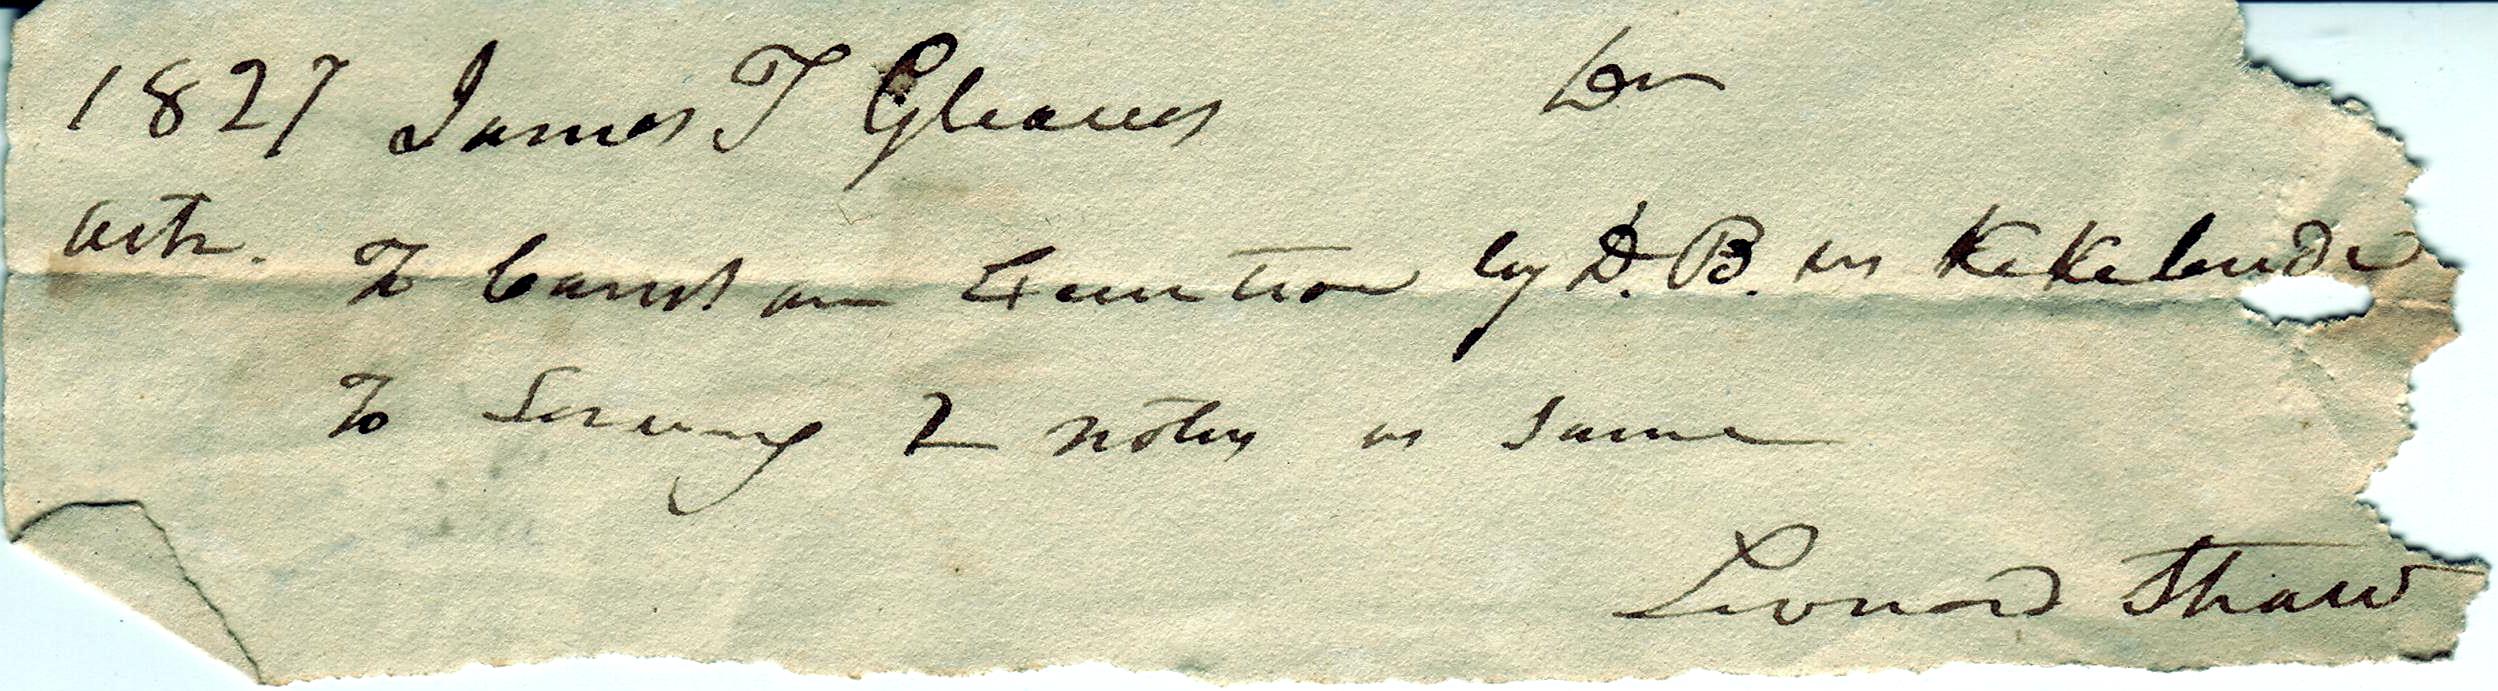 1827 James T Gleaves Dr
Octr. To Canst an Execution by D. B. vs
To Serving 2 notes vs Same
Leonard Shaw